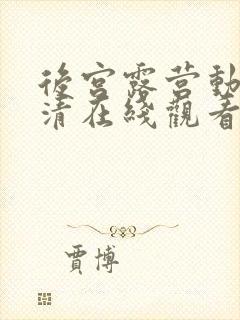 後宮露营動
清在綫觀看
賈博